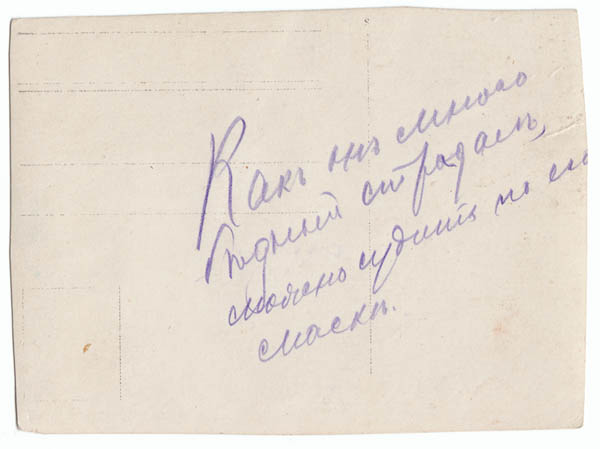 Какъ онъ много
бѣдный страдалъ,
можно судить по его
маскѣ.